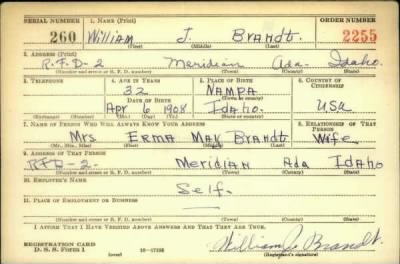 SERIAL NUMBER 1. NAME (Print) ORDER NUMBER
260 William J. Brandt 2255
(First) (Middle) (Last)
2. ADDRESS (Print)
R.F.D-2 Meridian Ada- Idaho.
(Number and street or R. F. D. number) (Town) (County) (State)
3. TELEPHONE 4. AGE IN YEARS 5. PLACE OF BIRTH 6. COUNTRY OF CITIZENSHIP
32 NAMPA
DATE OF BIRTH (Town or county)
Apr 6 1908 Idaho. USA
(Exchange) (Number) (Mo.) (Day) (Yr.) (State or country)
7. NAME OF PERSON WHO WILL ALWAYS KNOW YOUR ADDRESS 8. RELATIONSHIP OF THAT PERSON
Mrs Erma May Brandt Wife
(Mr., Mrs., Miss) (First) (Middle) (Last)
9. ADDRESS OF THAT PERSON
RFD-2- Meridian Ada Idaho
(Number and street or R. F. D. number) (Town) (County) (State)
10. EMPLOYER'S NAME
Self-
11. PLACE OF EMPLOYMENT OR BUSINESS
(Number and street or R. F. D. number) (Town) (County) (State)
I AFFIRM THAT I HAVE VERIFIED ABOVE ANSWERS AND THAT THEY ARE TRUE.
REGISTRATION CARD
D. S. S. Form 1 (over) 16-17105 William J. Brandt.
(Registrant's signature)